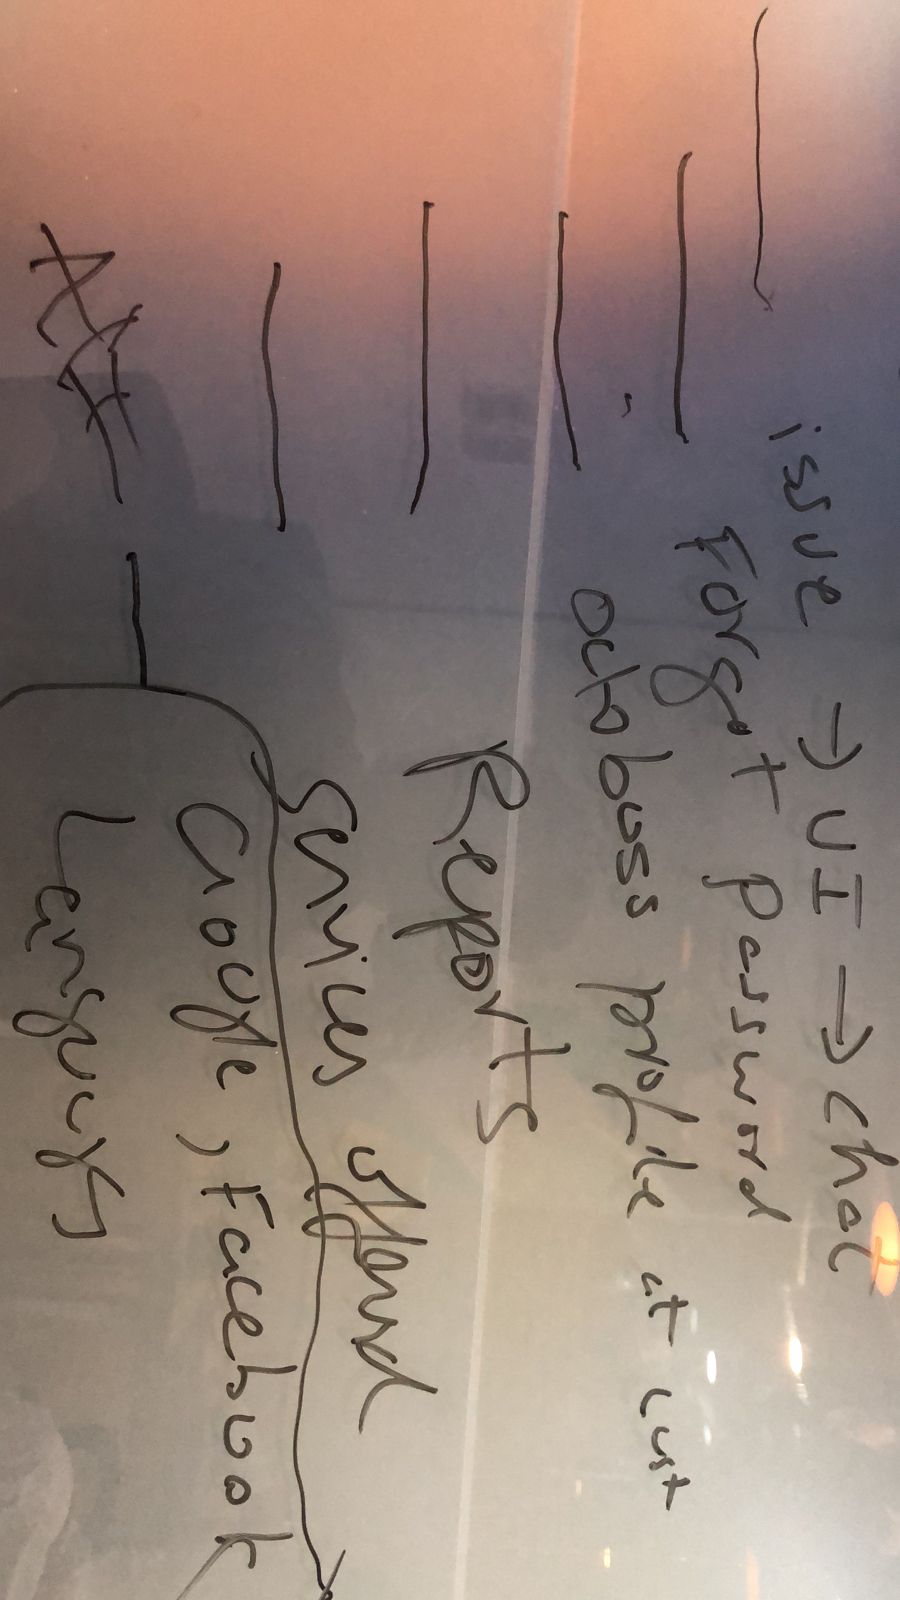 issue → UI → chat
Forgot Password
octoboss profile at cust
Reports
services offered
Google, Facebook
Languages